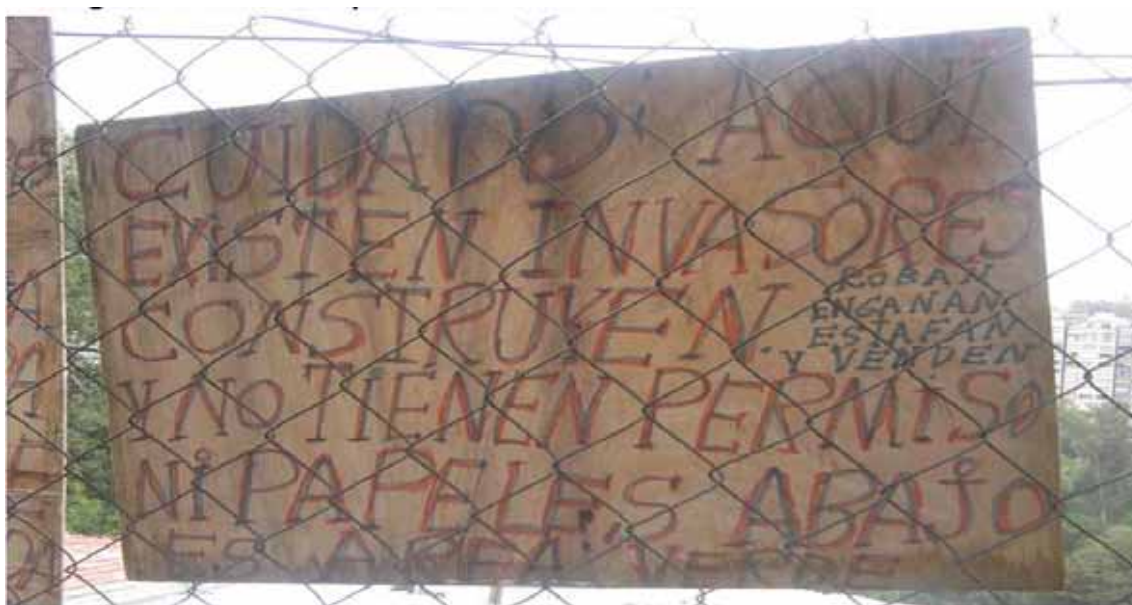 CUIDADO. AQUI
EXISTEN INVASORES
CONSTRUYEN.
ROBAN
ENGANAN.
ESTAFAN
Y VENDEN
Y NO TIENEN PERMISO
Ni PAPELES ABAJO
ES AREA VERDE